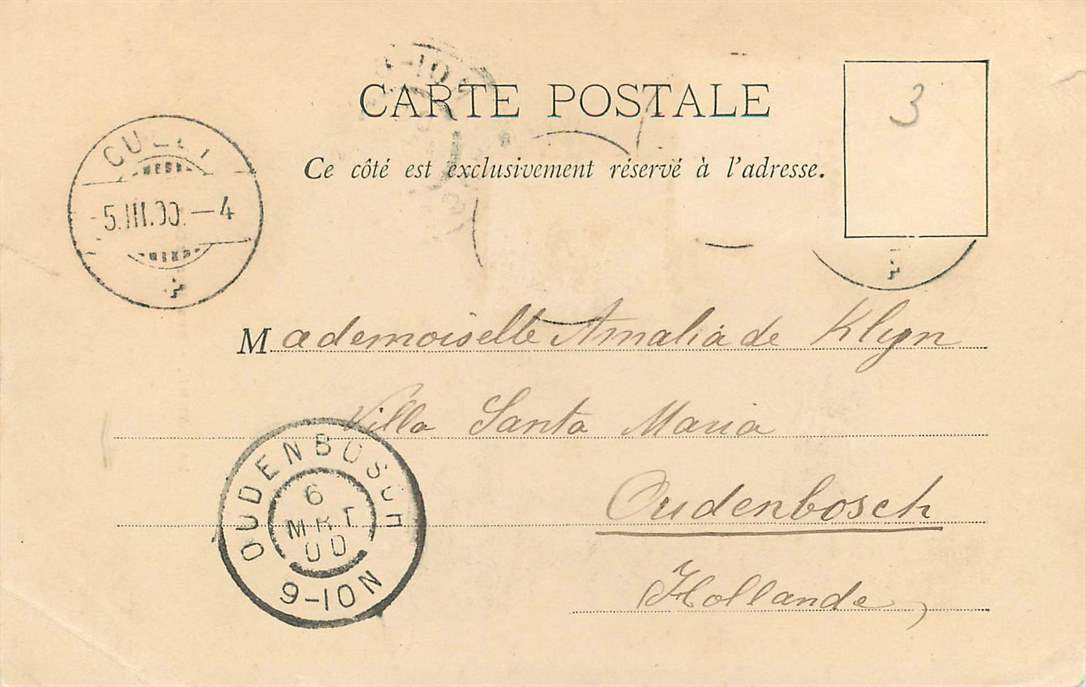 CARTE POSTALE
3
Ce côté est exclusivement réservé à l'adresse.
CULLY
-5.III.00.-4
Mademoiselle Amalia de Klyn
Villa Santa Maria
Oudenbosch
Hollande,
OUDENBOSCH
6
MRT
00
9-10N